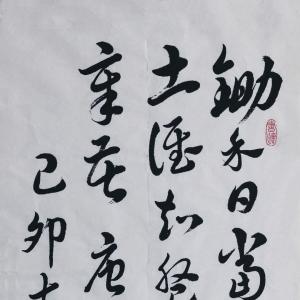 鋤禾日當
土誰知盤
辛苦唐
己卯